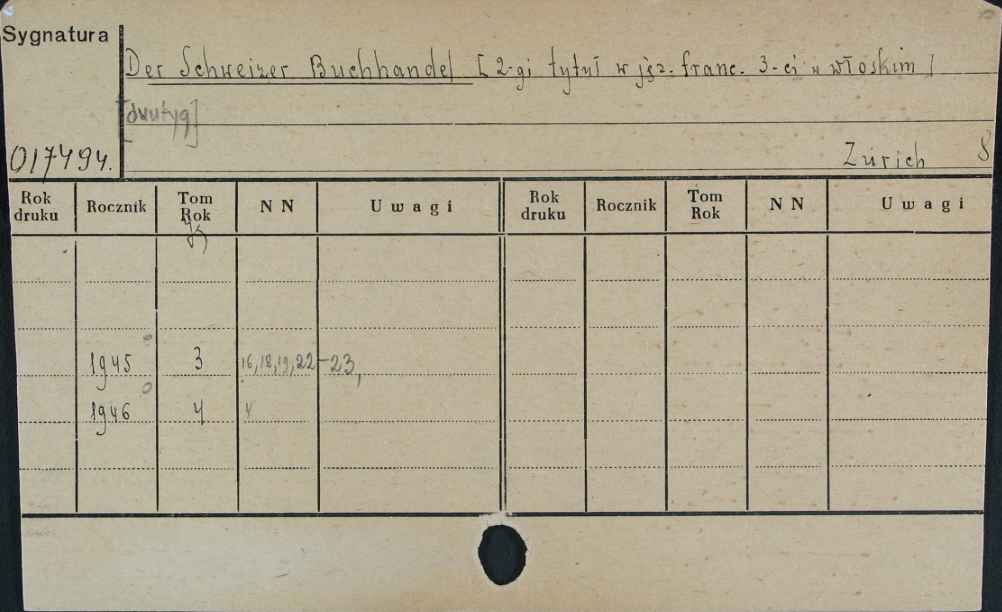 Sygnatura
Der Schweizer Buchhandel [2-gi tytuł w jęz. franc. 3-ci w włoskim]
[dwutyg]
017494. Zürich S
Rok druku Rocznik Tom Rok N N Uwagi Rok druku Rocznik Tom Rok N N Uwagi
1945 3 16,18,19,22-23,
1946 4 4